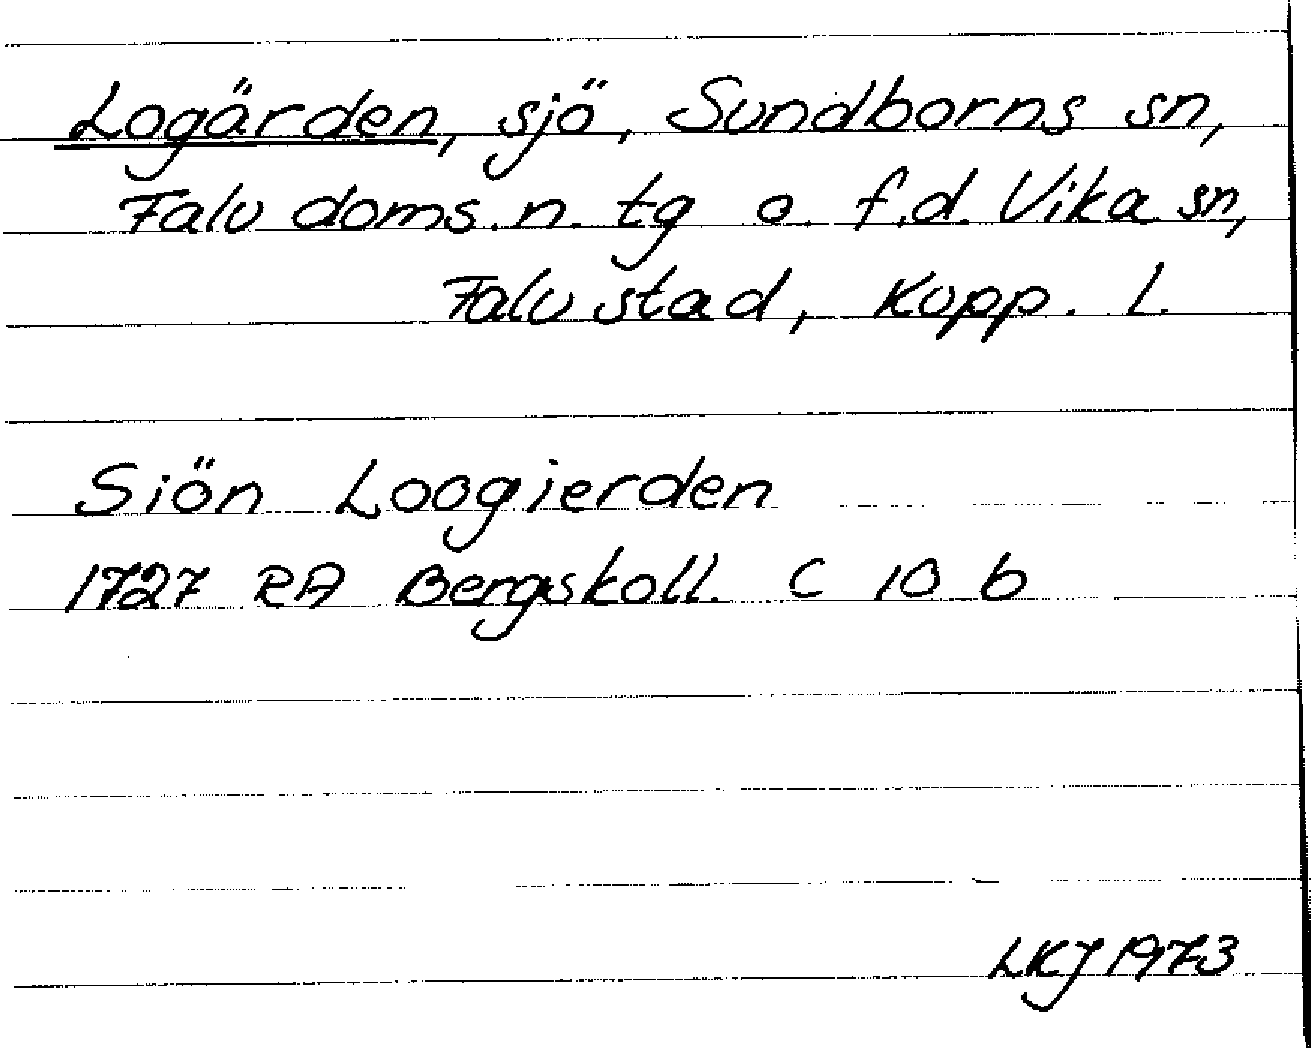 Logärden, sjö, Sundborns sn,
Falu doms. n. tg o. f.d. Vika sn,
Falu stad, Kopp. l.
Siön Loogierden
1727 RA Bergskoll. C 10 b
LKJ 1973